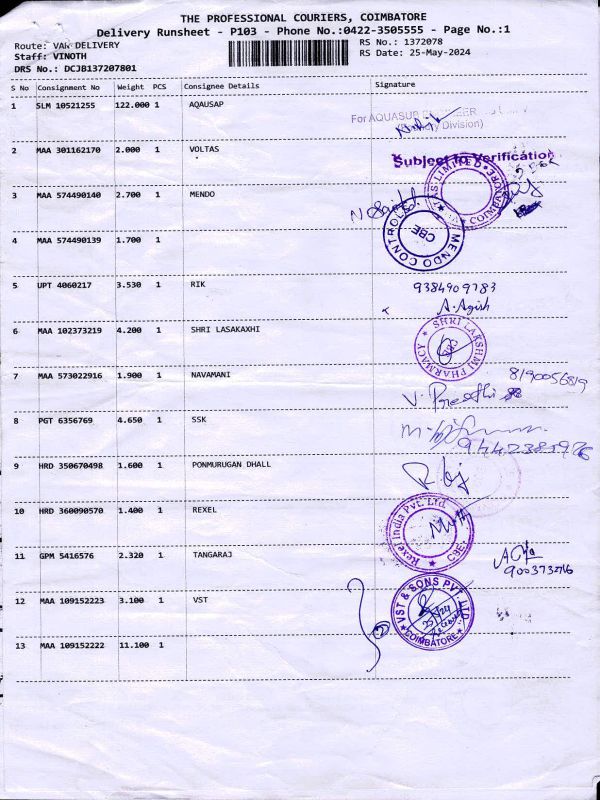 THE PROFESSIONAL COURIERS, COIMBATORE
Delivery Runsheet - P103 - Phone No.:0422-3505555 - Page No.:1
Route: VAK DELIVERY RS No.: 1372078
Staff: VINOTH RS Date: 25-May-2024
DRS No.: DCJB137207801
S No Consignment No Weight PCS Consignee Details Signature
1 SLM 10521255 122.000 1 AQAUSAP
For AQUASUB
Division)
2 MAA 301162170 2.000 1 VOLTAS
Subject to Verification
3 MAA 574490140 2.700 1 MENDO
LIMITED COIMBATORE
MENDO CONTROLS CBE
4 MAA 574490139 1.700 1
5 UPT 4060217 3.530 1 RIK 9384909783
A. Agish
6 MAA 102373219 4.200 1 SHRI LASAKAXHI
SHRI LAKSHMI PHARMACY
7 MAA 573022916 1.900 1 NAVAMANI 8190056819
V. Preethi
8 PGT 6356769 4.650 1 SSK
9 HRD 350670498 1.600 1 PONMURUGAN DHALL
10 HRD 360090570 1.400 1 REXEL
Rexel India Pvt. Ltd. CBE
11 GPM 5416576 2.320 1 TANGARAJ
12 MAA 109152223 3.100 1 VST
VST & SONS PVT. LTD COIMBATORE
13 MAA 109152222 11.100 1